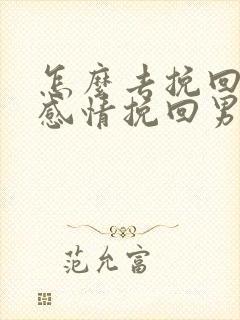 怎麼去挽回
感情挽回男
范允富